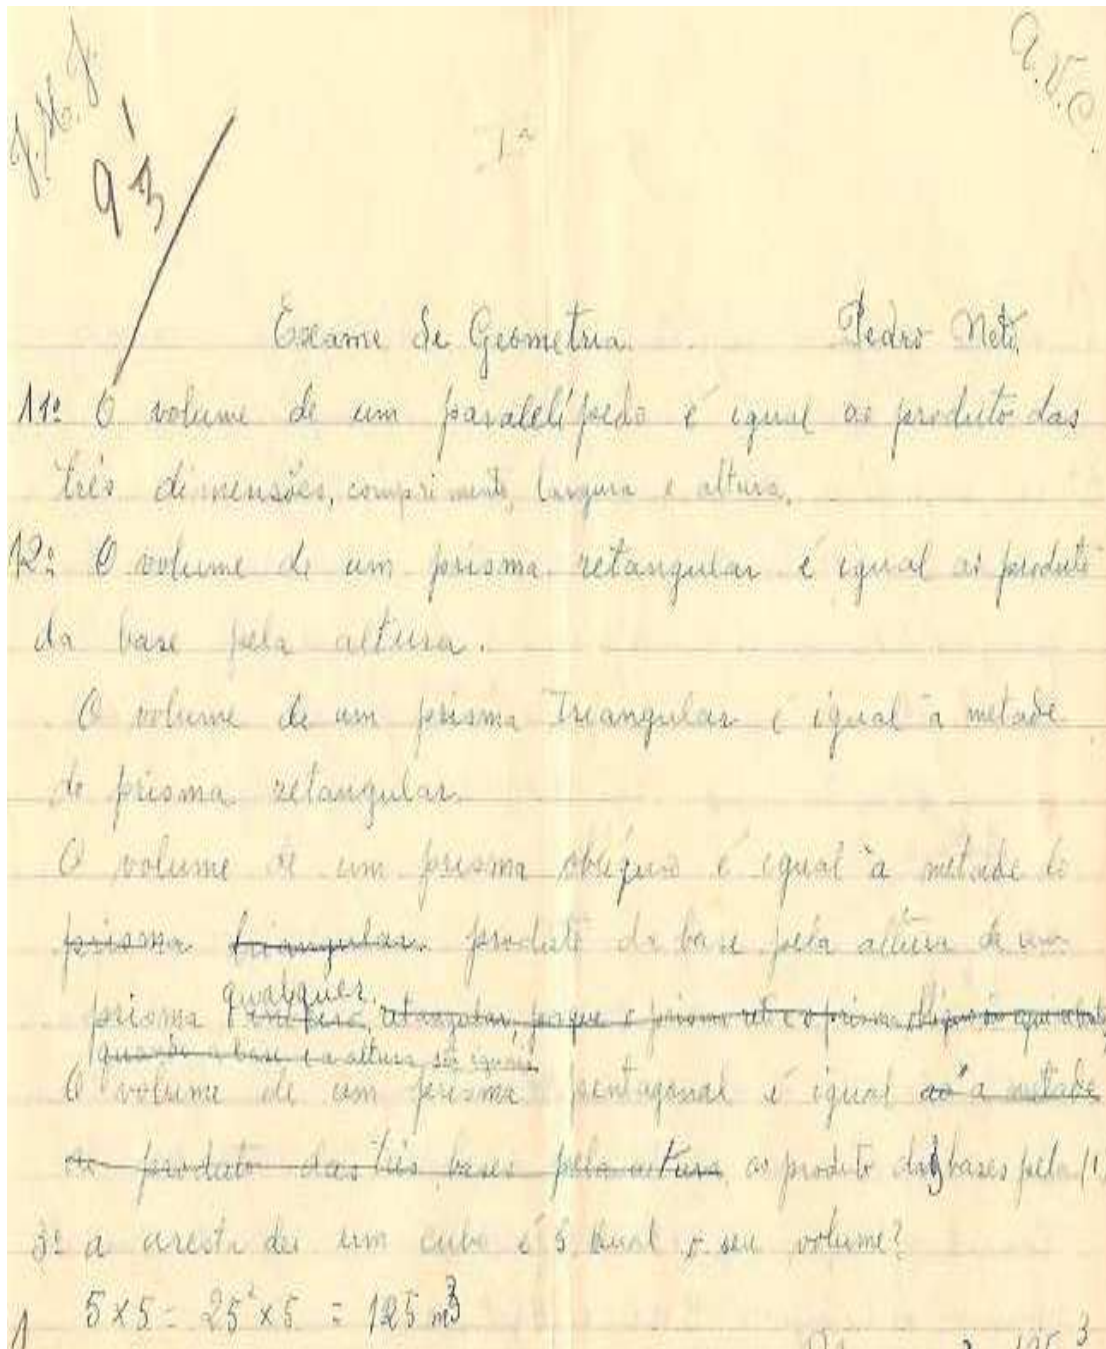 J. M. J.
A. V. C.
93
1ª
Exame de Geometria. Pedro Neto.
11º O volume de um paralelípedo é igual ao produto das
três dimensões, comprimento, largura e altura.
12º O volume de um prisma retangular é igual ao produto
da base pela altura.
O volume de um prisma Triangular é igual à metade
do prisma retangular.
O volume de um prisma oblíquo é igual à metade do
prisma triangular produto da base pela altura de um
qualquer.
prisma retangular, porque o prisma reto e o prisma oblíquo são
quando a base e a altura são iguais
O volume de um prisma pentagonal é igual ao à metade
do produto das três bases pela altura ao produto das bases pela
3º a aresta de um cubo é 5 Qual o seu volume?
5 x 5 = 25² x 5 = 125 m³